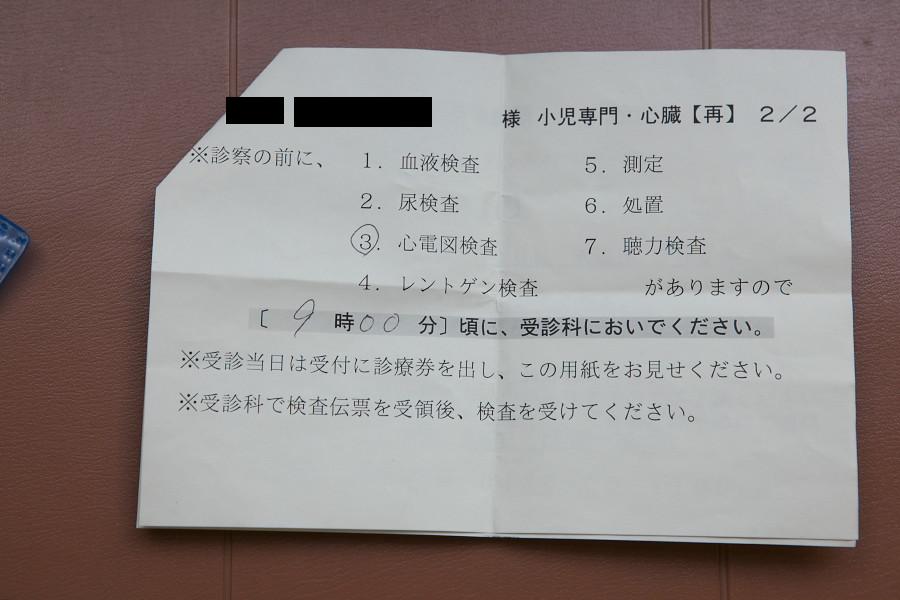 様 小児専門・心臓【再】 2/2
※診察の前に、 1. 血液検査 5. 測定
2. 尿検査 6. 処置
3. 心電図検査 7. 聴力検査
4. レントゲン検査 がありますので
〔 9 時00 分〕頃に、受診科においでください。
※受診当日は受付に診療券を出し、この用紙をお見せください。
※受診科で検査伝票を受領後、検査を受けてください。